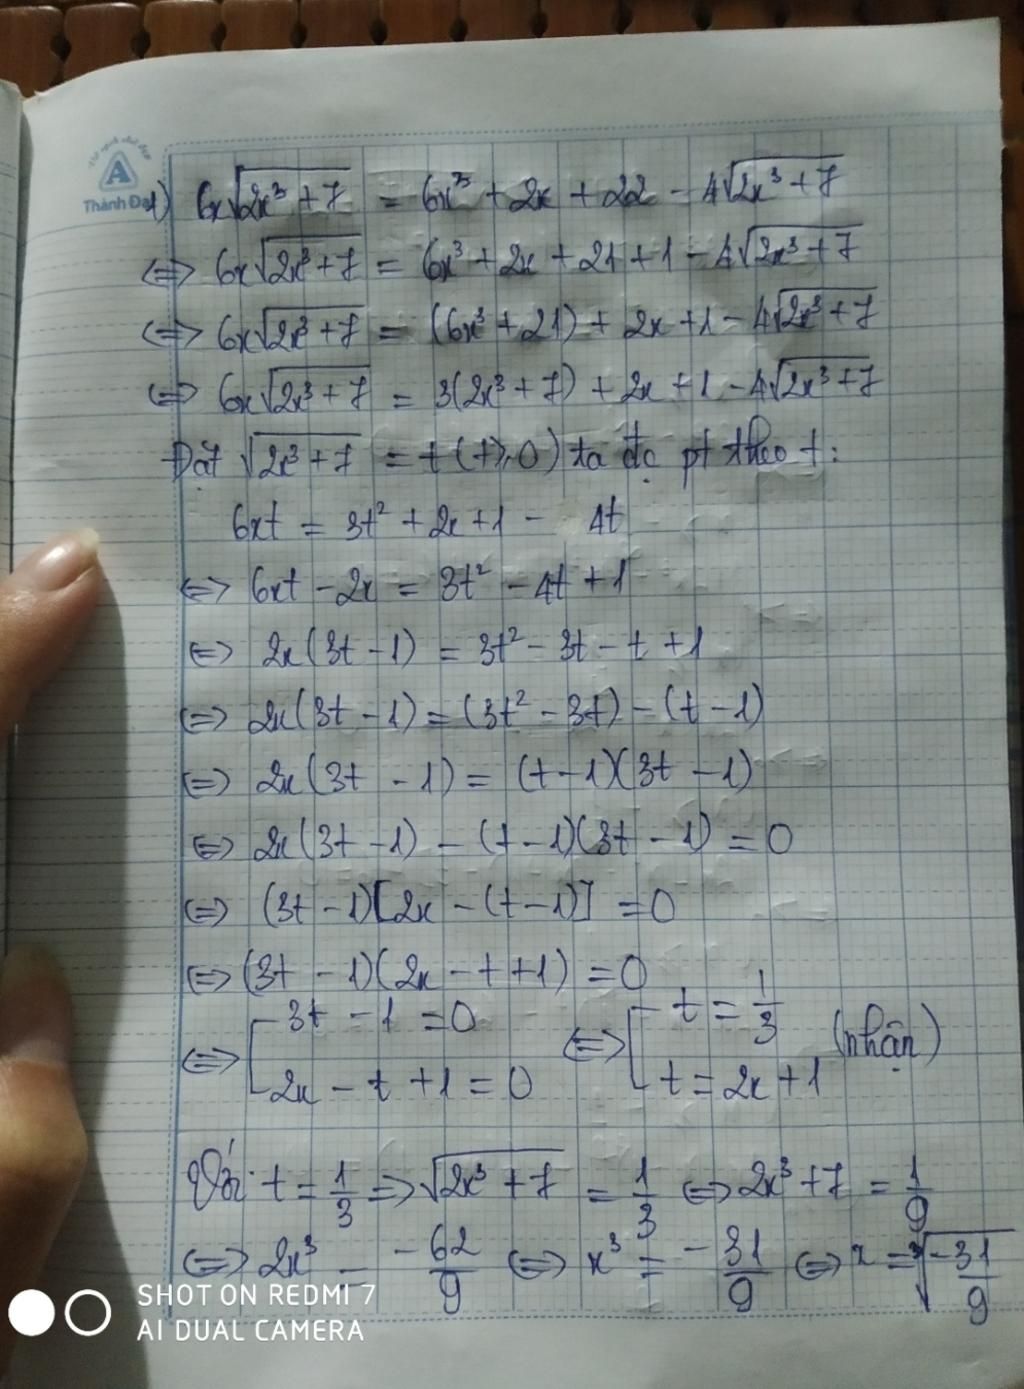 Vở sạch chữ đẹp
A
Thành Đạt
1) 6x√(2x³ + 7) = 6x³ + 2x + 22 - 4√(2x³ + 7)
<=> 6x√(2x³ + 7) = 6x³ + 2x + 21 + 1 - 4√(2x³ + 7)
<=> 6x√(2x³ + 7) = (6x³ + 21) + 2x + 1 - 4√(2x³ + 7)
<=> 6x√(2x³ + 7) = 3(2x³ + 7) + 2x + 1 - 4√(2x³ + 7)
Đặt √(2x³ + 7) = t (t ≥ 0) ta đc pt theo t:
6xt = 3t² + 2x + 1 - 4t
<=> 6xt - 2x = 3t² - 4t + 1
<=> 2x(3t - 1) = 3t² - 3t - t + 1
<=> 2x(3t - 1) = (3t² - 3t) - (t - 1)
<=> 2x(3t - 1) = (t - 1)(3t - 1)
<=> 2x(3t - 1) - (t - 1)(3t - 1) = 0
<=> (3t - 1)[2x - (t - 1)] = 0
<=> (3t - 1)(2x - t + 1) = 0
<=> [ 3t - 1 = 0 <=> [ t = 1/3 (nhận)
2x - t + 1 = 0 t = 2x + 1
Với t = 1/3 => √(2x³ + 7) = 1/3 <=> 2x³ + 7 = 1/9
<=> 2x³ = -62/9 <=> x³ = -31/9 <=> x = ³√(-31/9)
SHOT ON REDMI 7
AI DUAL CAMERA